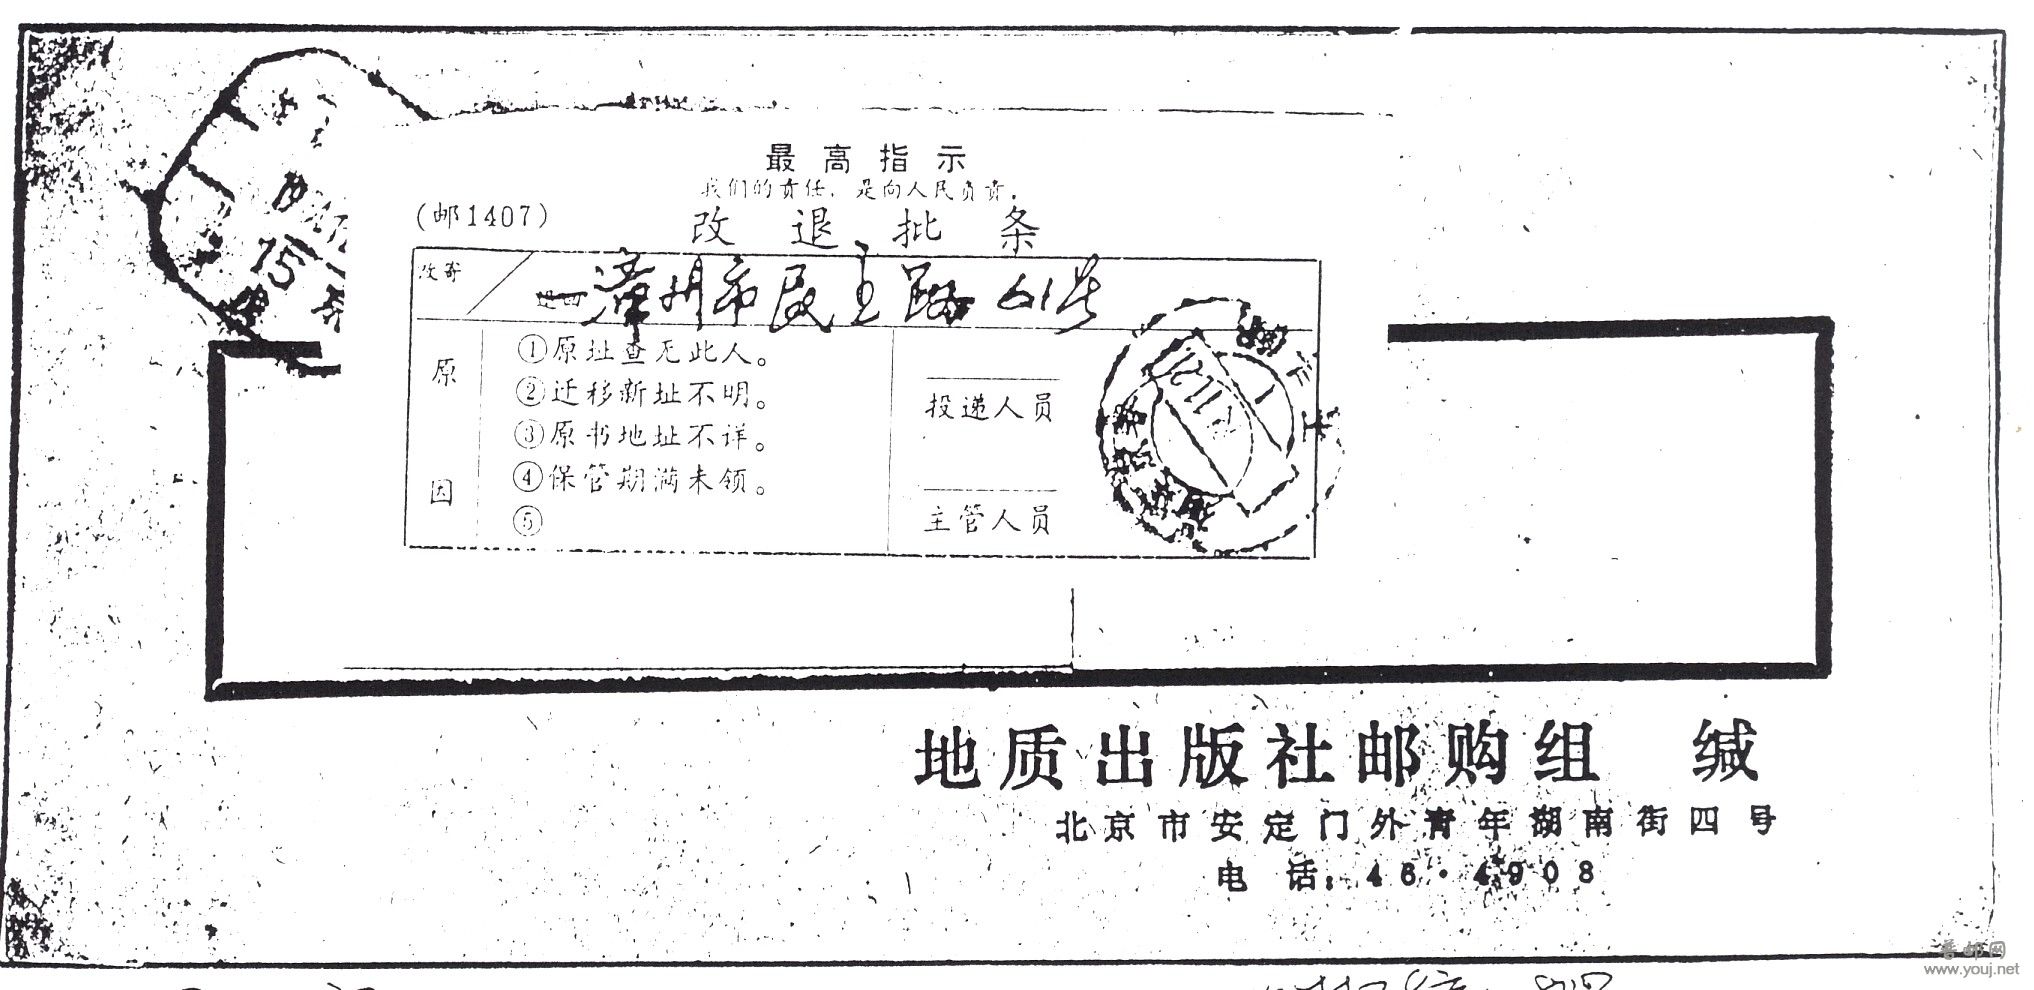 最高指示
我们的责任，是向人民负责。
(邮1407)
改退批条
改寄 / 退回 漳州市民主路61号
原因
①原址查无此人。
②迁移新址不明。
③原书地址不详。
④保管期满未领。
⑤
投递人员
主管人员
15
地质出版社邮购组 缄
北京市安定门外青年湖南街四号
电话：46·4908
普邮网
www.youj.net